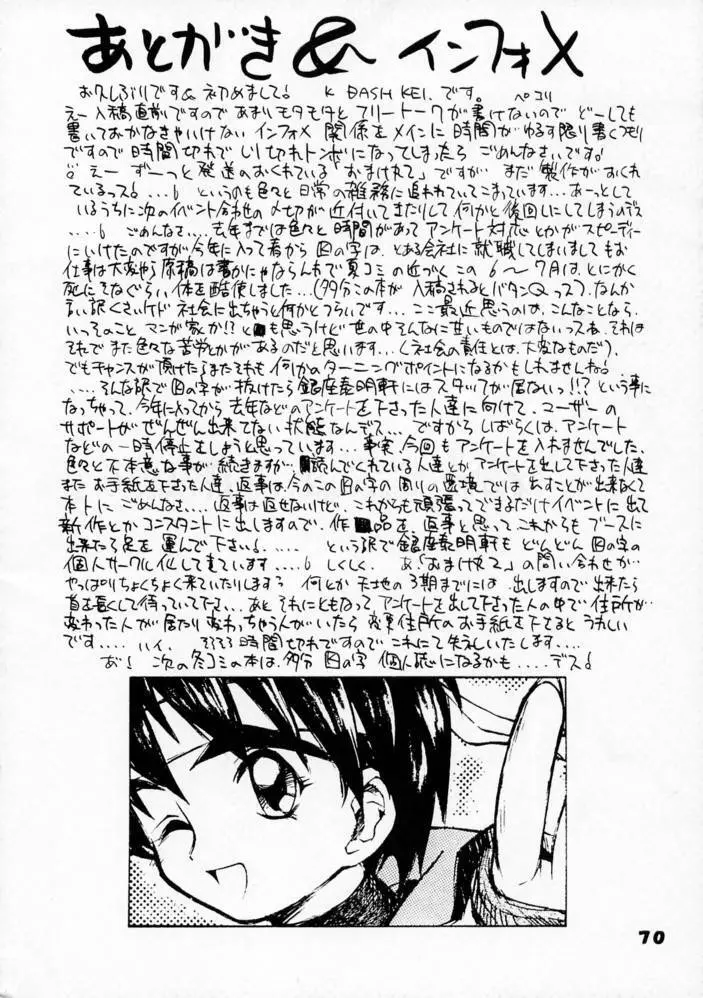 あとがき & インフォメ
お久しぶりです&初めまして! K DASH KEI. です。 ペコリ
えー入稿直前ですのであまりモタモタとフリートークが書けないので どーしても
書いておかなきゃいけない インフォメ 関係をメインに 時間がゆるす限り書くつもり
ですので 時間切れで しり切れトンボになってしまったら ごめんなさいです!
えー ずーっと発送のおくれている「おまけ丸て」ですが まだ製作がおくれ
ているっス! というのも色々と日常の雑務に追われていてこまっています...あーっとして
いるうちに次のイベント合わせの〆切が近付いてきたりして何かと後回しにしてしまうのデス
....6 ごめんなさ...去年までは色々と時間があってアンケート対応とかがスピーディー
にいけたのですが今年に入って 図の字は、とある会社に就職してしまいましてもお
仕事は大変やら 原稿は書かにゃならんわで夏コミの近づくこの 6〜7月は、とにかく
死にそなぐらい体を酷使しました...(多分この本が入稿されるとバタンQっス)。なんか
言い訳くさいけど 社会に出ちゃうと何かとつらいです... ここ最近思うのは、こんなことなら、
いっそのこと マンガ家か!?とも思うけど世の中そんなに甘いものではないっスね、それは
それでまた色々な苦労とかがあるのだと思います...(社会の責任とは、大変なものだ)。
でもチャンスが頂けたらまたそれも何かのターニングポイントになるかもしれませんね!
....そんな訳で図の字が抜けたら銀座泰明軒にはスタッフが居ないっ!!?という事に
なっちゃって、今年に入ってから去年などのアンケートを下さった人達に向けて、ユーザーの
サポートがぜんぜん出来てない状態なんデス... ですからしばらくは、アンケート
などの一時停止をしようと思っています...事実、今回もアンケートを入れませんでした。
色々と不本意な事が続きますが...読んでくれている人達とか、アンケートを出して下さった人達
またお手紙を下さった人達、返事は、今のこの図の字の周りの環境では出すことが出来なくて
本トにごめんなさ... 返事は返せないけど、これからも頑張ってできるだけイベントに出て
新作とかコンスタントに出しますので、作品を、返事と思ってこれからもブースに
出来たら足を運んで下さい!.... という訳で銀座泰明軒もどんどん図の字の
個人サークル化して来ています....6 しくしく. あ!「おまけ丸て」の問い合わせが
やっぱりちょくちょく来ていたりします? 何とか天地の3期までには出しますので出来たら
首を長くして待っていて下さ...あと それにともなって、アンケートを出して下さった人の中で住所が
変わった人が居たり変わっちゃう人がいたら変更住所のお手紙を下さるとうれしい
です.... ハイ、 そろそろ時間切れですのでこれにて失礼いたします....
あ! 次の冬コミの本は、多分 図の字 個人誌になるかも....デス!
70